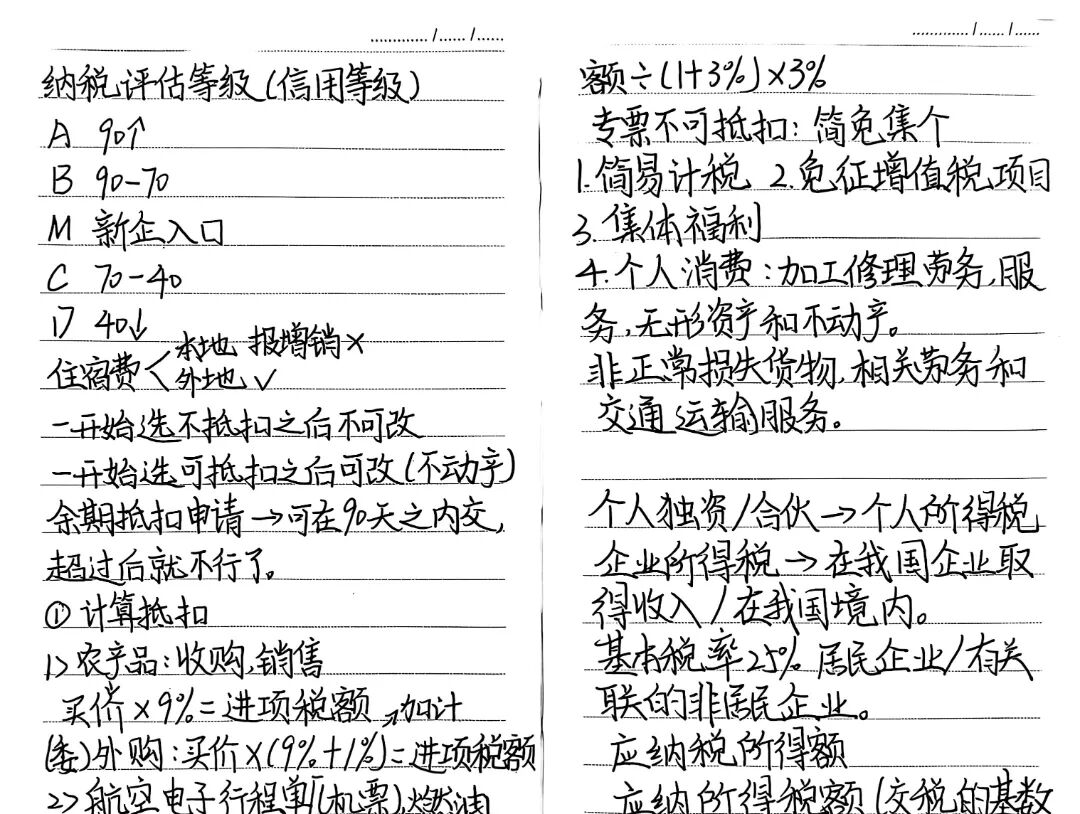 ............/....../......
纳税评估等级(信用等级)
A 90↑
B 90-70
M 新企入口
C 70-40
D 40↓
住宿费<本地 报增销×
外地 ✓
一开始选不抵扣之后不可改
一开始选可抵扣之后可改(不动产)
余期抵扣申请→可在90天之内交,
超过后就不行了。
① 计算抵扣
1> 农产品:收购,销售
买价×9%=进项税额 ↗加计
(委)外购:买价×(9%+1%)=进项税额
2> 航空电子行程单(机票),燃油
............/....../......
额÷(1+3%)×3%
专票不可抵扣:简免集个
1.简易计税 2.免征增值税项目
3.集体福利
4.个人消费:加工修理劳务,服
务,无形资产和不动产。
非正常损失货物,相关劳务和
交通运输服务。
个人独资/合伙→个人所得税
企业所得税→在我国企业取
得收入/在我国境内。
基本税率25% 居民企业/有关
联的非居民企业。
应纳税所得额
应纳所得税额(交税的基数